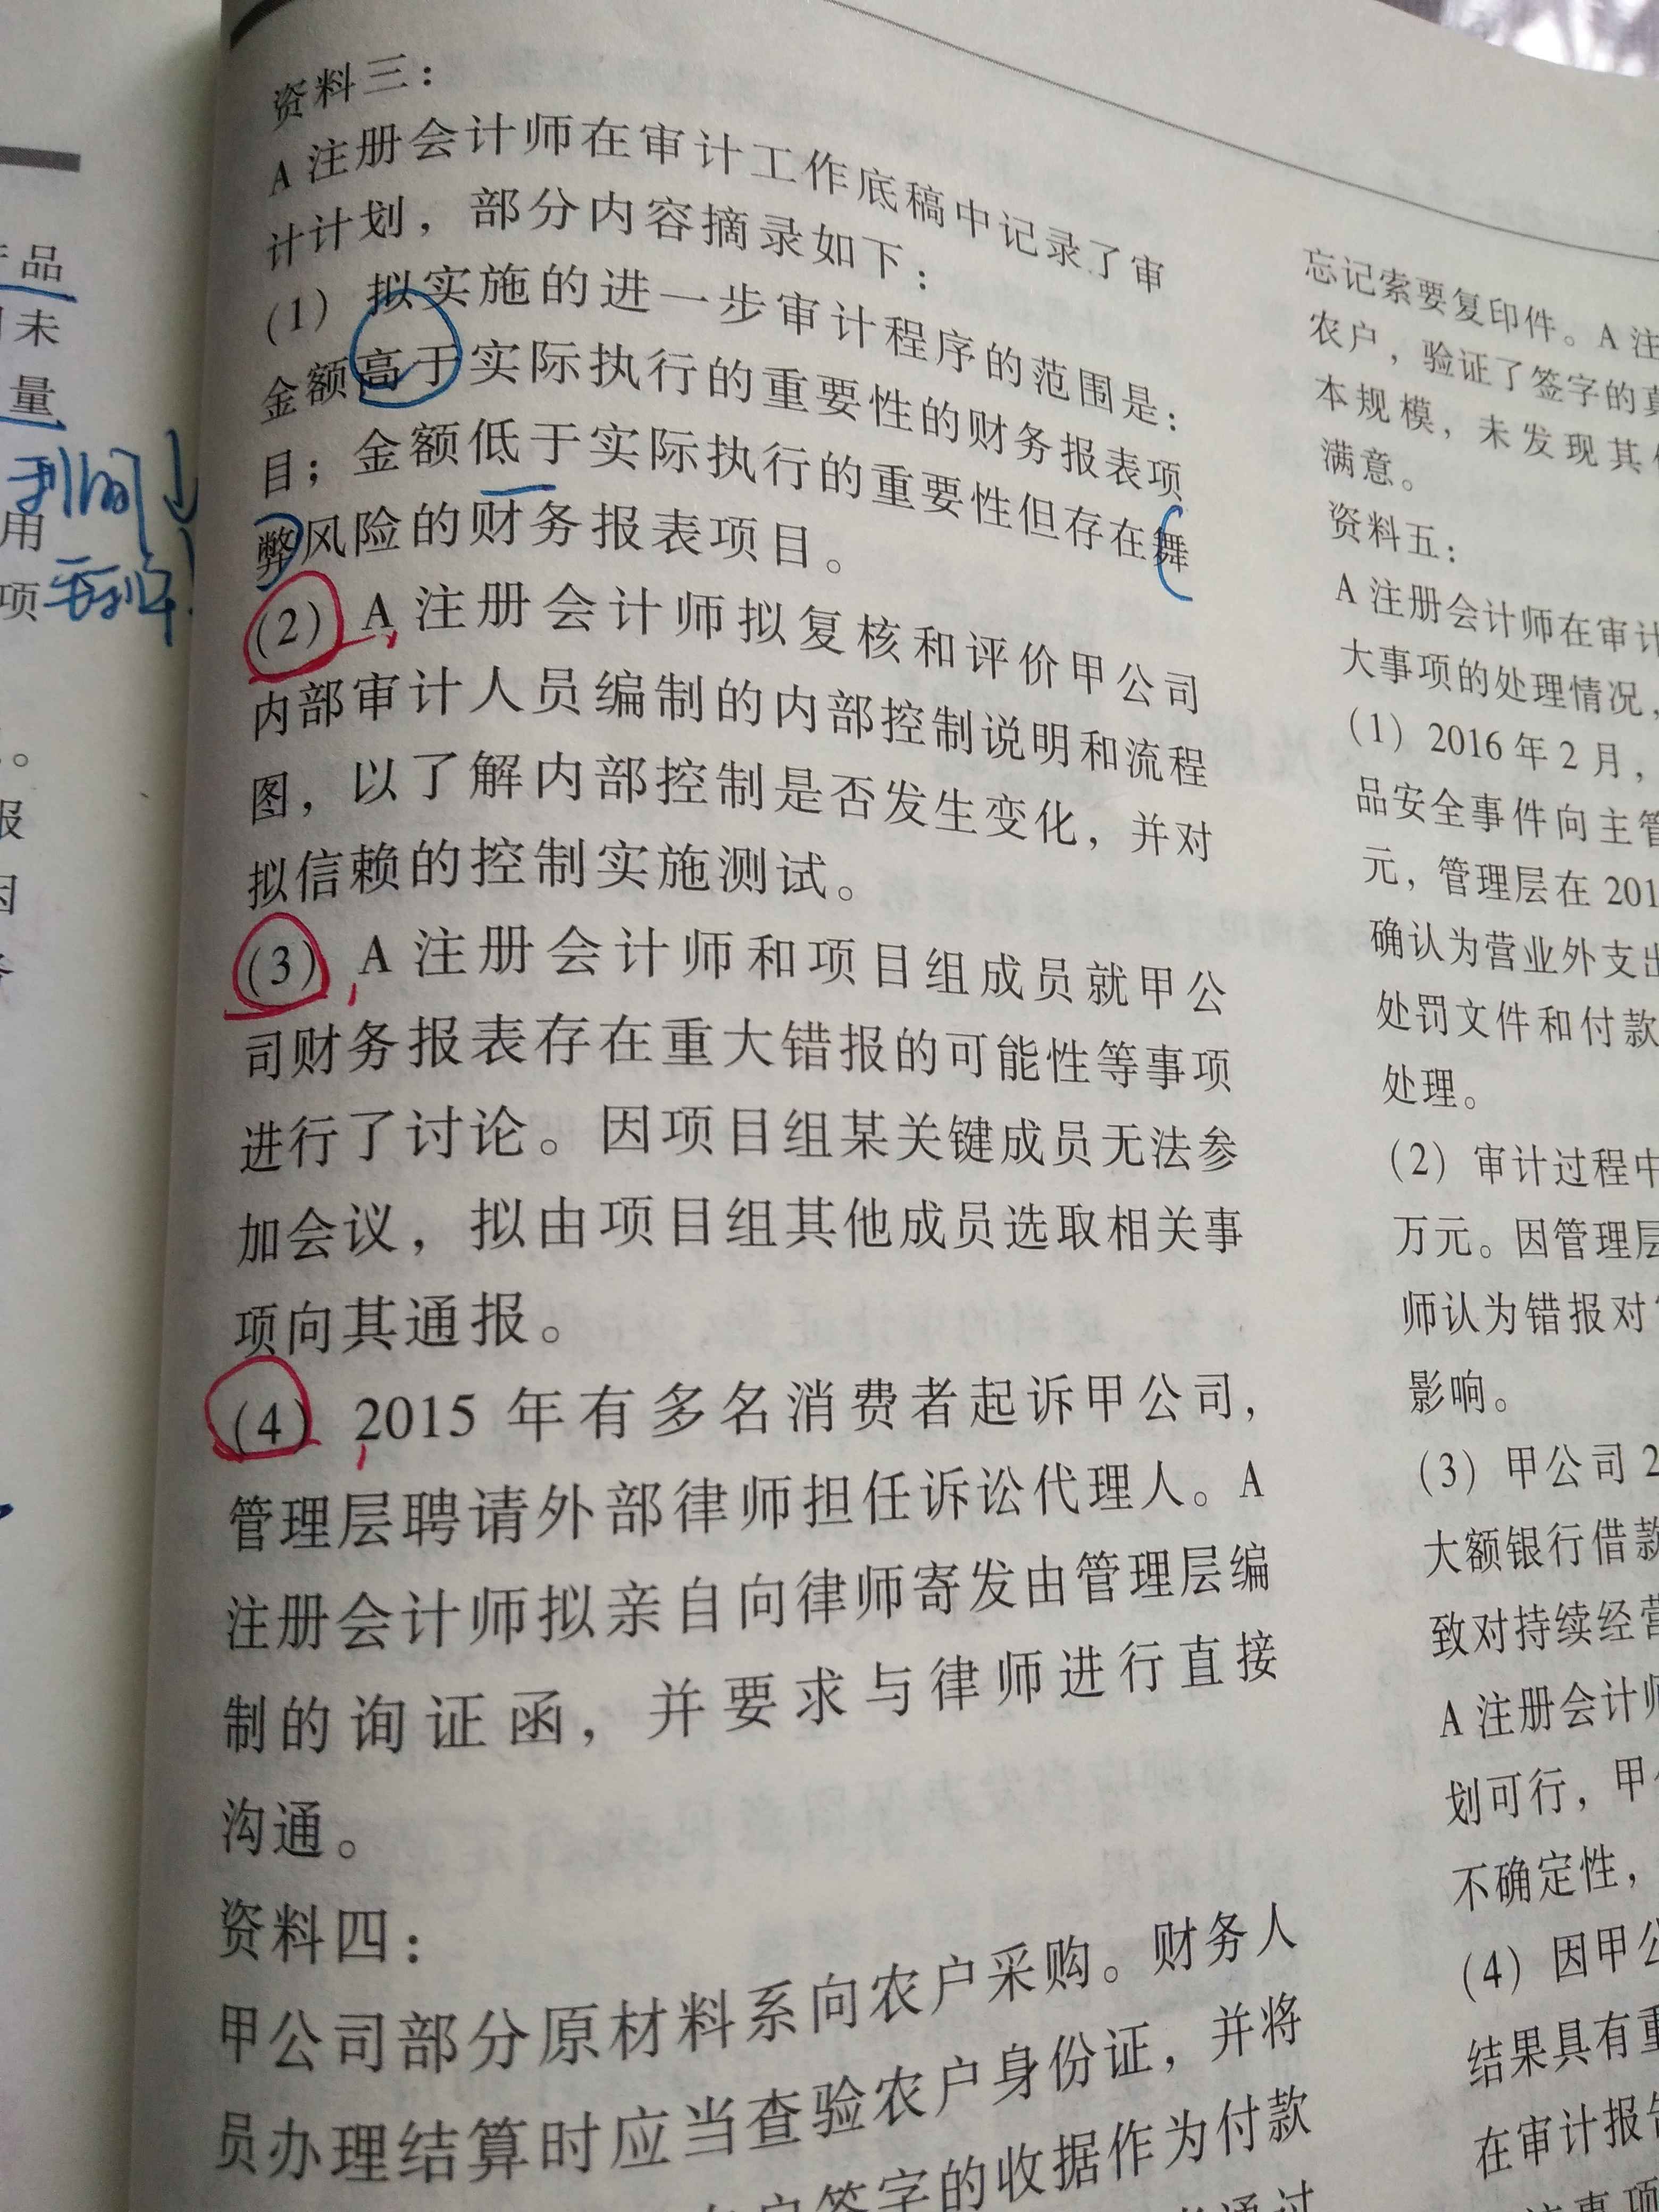 产品
未
量
利润↓
用
项毛利率↓
。
报
因
资料三：
A注册会计师在审计工作底稿中记录了审
计计划，部分内容摘录如下：
(1) 拟实施的进一步审计程序的范围是：
金额高于实际执行的重要性的财务报表项
目；金额低于实际执行的重要性但存在舞
弊风险的财务报表项目。
(2) A注册会计师拟复核和评价甲公司
内部审计人员编制的内部控制说明和流程
图，以了解内部控制是否发生变化，并对
拟信赖的控制实施测试。
(3) A注册会计师和项目组成员就甲公
司财务报表存在重大错报的可能性等事项
进行了讨论。因项目组某关键成员无法参
加会议，拟由项目组其他成员选取相关事
项向其通报。
(4) 2015年有多名消费者起诉甲公司，
管理层聘请外部律师担任诉讼代理人。A
注册会计师拟亲自向律师寄发由管理层编
制的询证函，并要求与律师进行直接
沟通。
资料四：
甲公司部分原材料系向农户采购。财务人
员办理结算时应当查验农户身份证，并将
户签字的收据作为付款
通过
忘记索要复印件。A注
农户，验证了签字的真
本规模，未发现其
满意。
资料五：
A注册会计师在审计
大事项的处理情况，
(1) 2016年2月，
品安全事件向主管
元，管理层在201
确认为营业外支出
处罚文件和付款
处理。
(2) 审计过程中
万元。因管理层
师认为错报对
影响。
(3) 甲公司2
大额银行借款
致对持续经营
A注册会计师
划可行，甲
不确定性，
(4) 因甲公
结果具有重
在审计报告
事项